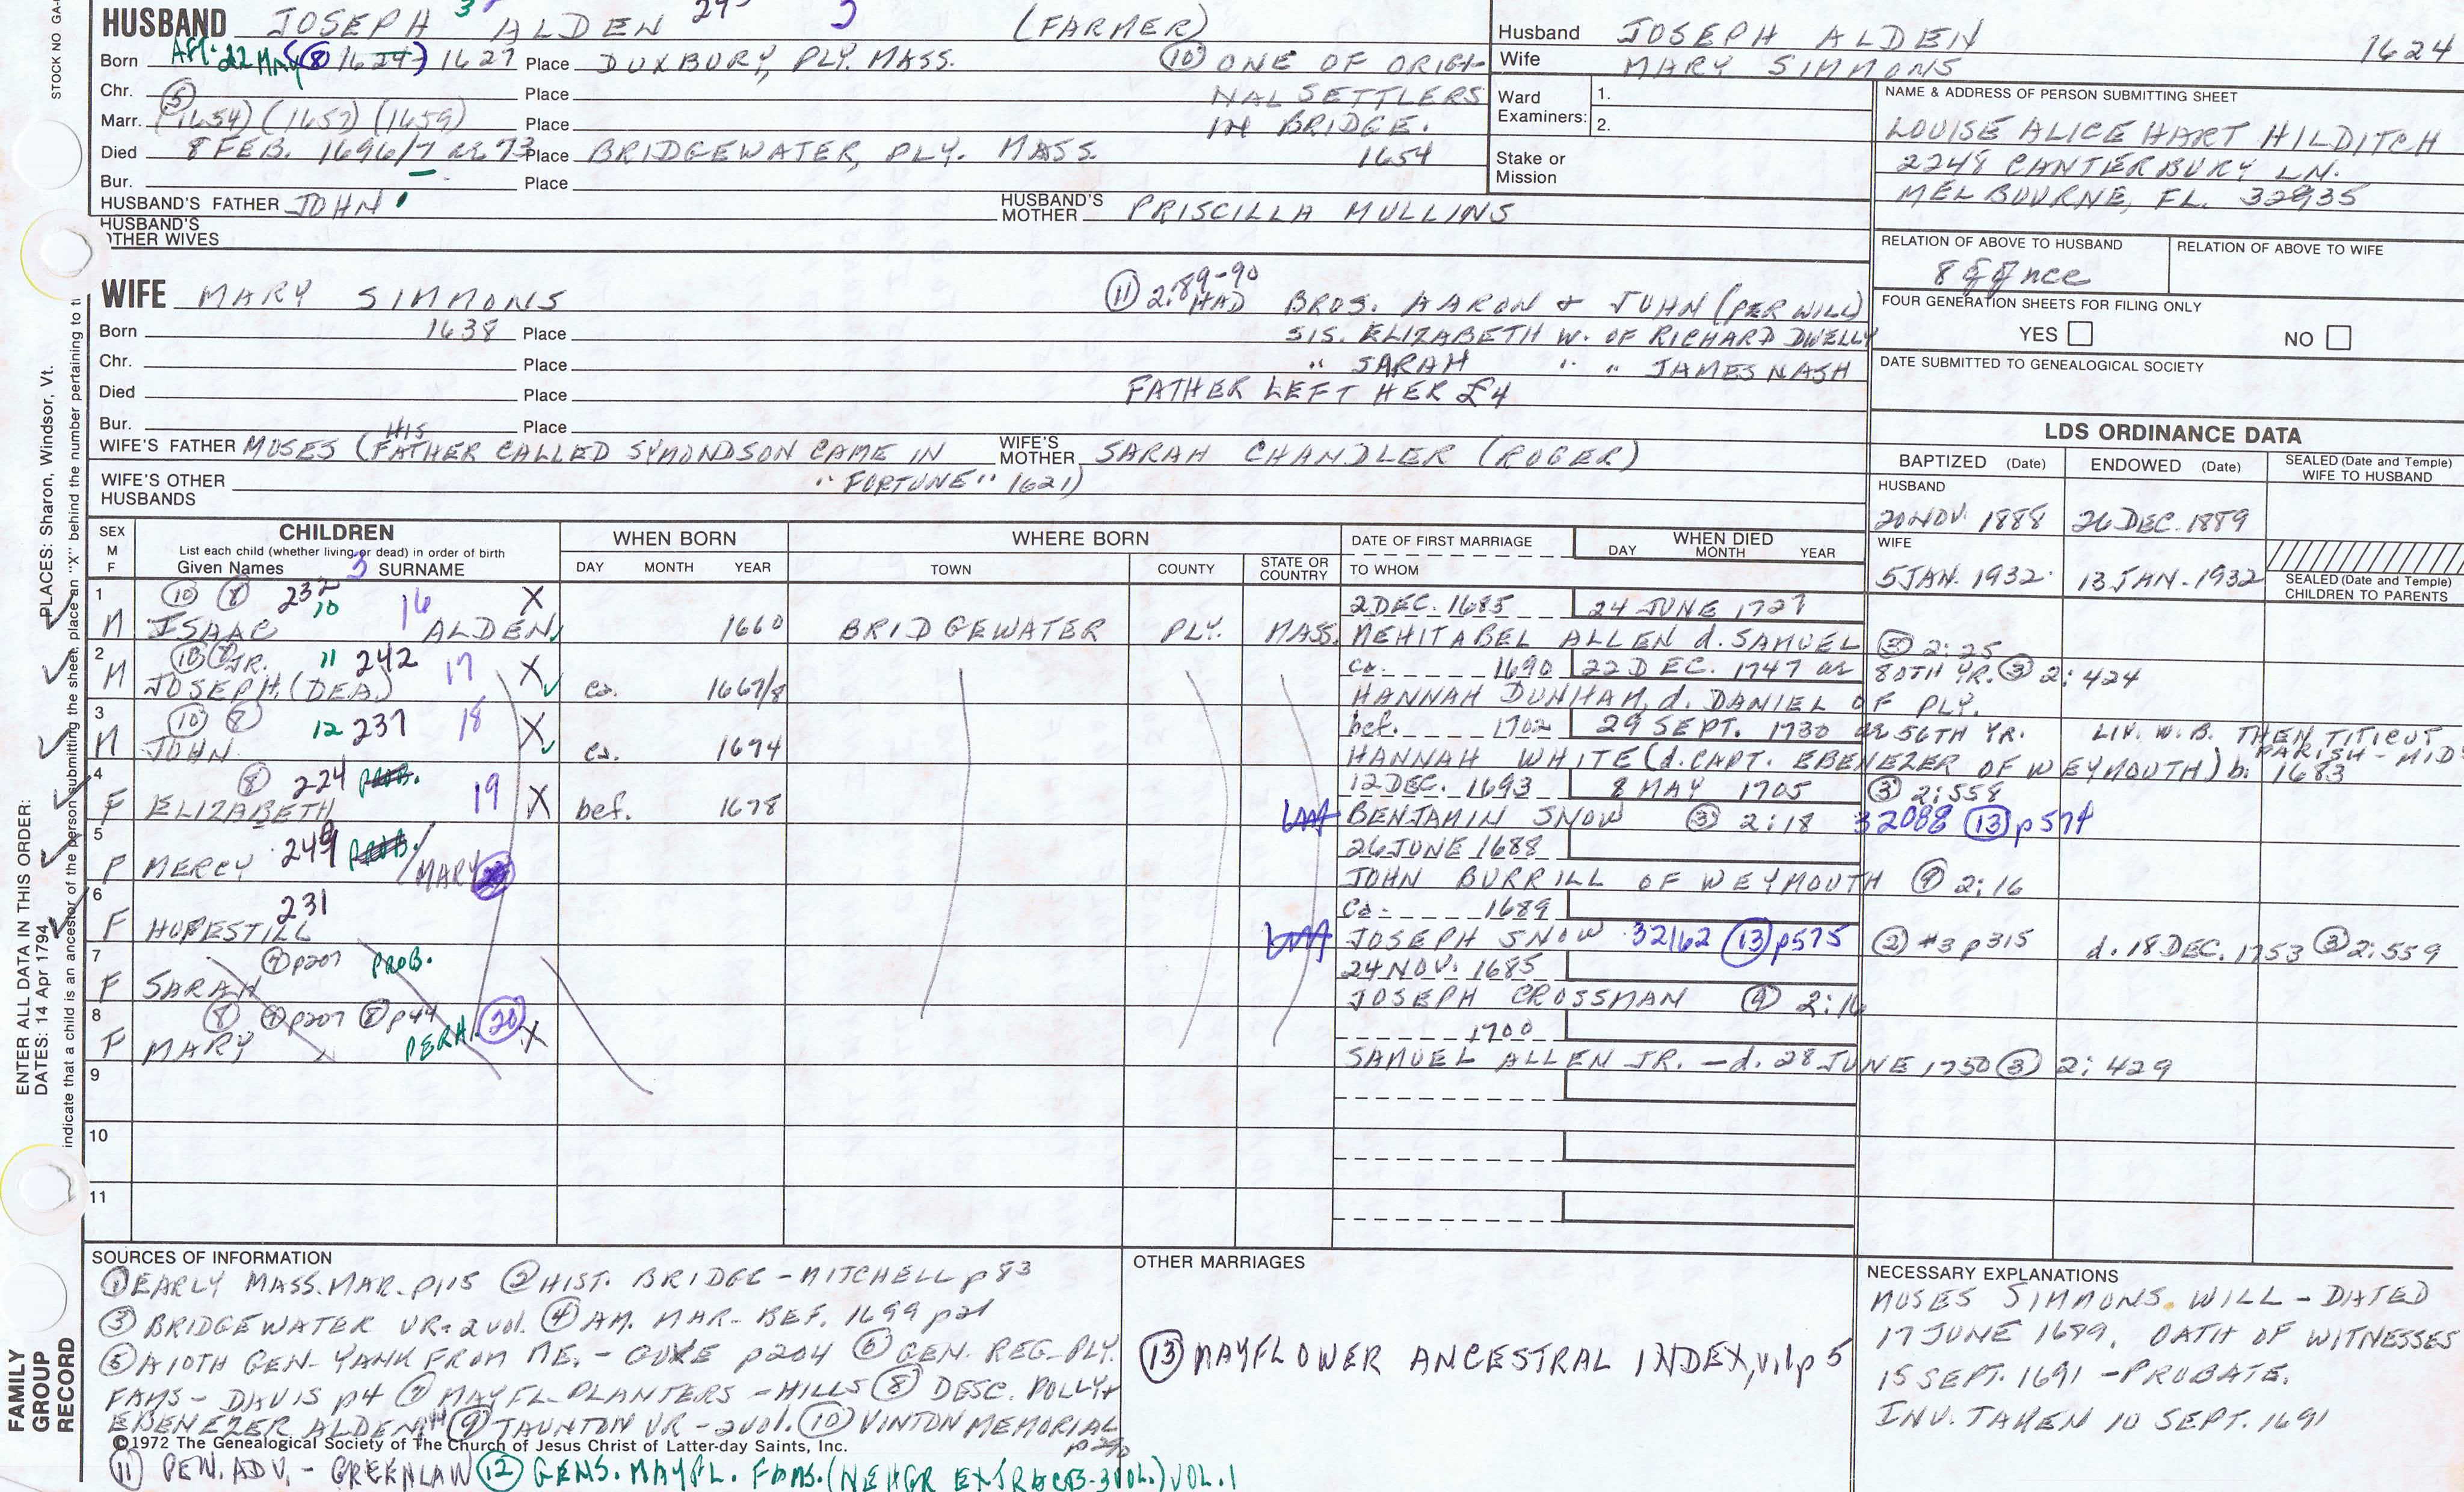 STOCK NO GA
HUSBAND JOSEPH 3 ALDEN (FARMER)
Born AFT. 22 MAY (⑧ 1624) 1627 Place DUXBURY, PLY. MASS. ⑩ ONE OF ORIGI-
Chr. Place NAL SETTLERS
Marr. ⑤ (1654) (1657) (1659) Place IN BRIDGE.
Died 8 FEB. 1696/7 ae 73 Place BRIDGEWATER, PLY. MASS. 1654
Bur. Place
HUSBAND'S FATHER JOHN HUSBAND'S MOTHER PRISCILLA MULLINS
HUSBAND'S
OTHER WIVES
Husband JOSEPH ALDEN 1624
Wife MARY SIMMONS
Ward Examiners: 1.
2.
Stake or Mission
NAME & ADDRESS OF PERSON SUBMITTING SHEET
LOUISE ALICE HART HILDITCH
2248 CANTERBURY LN.
MELBOURNE, FL. 32935
RELATION OF ABOVE TO HUSBAND RELATION OF ABOVE TO WIFE
nce
FOUR GENERATION SHEETS FOR FILING ONLY
YES NO
DATE SUBMITTED TO GENEALOGICAL SOCIETY
WIFE MARY SIMMONS ⑪ 2:89-90 HAD BROS. AARON & JOHN (PER WILL)
Born 1638 Place SIS. ELIZABETH W. OF RICHARD DWELLY
Chr. Place " SARAH " " JAMES NASH
Died Place FATHER LEFT HER £4
Bur. Place
WIFE'S FATHER MOSES (HIS FATHER CALLED SYMONDSON CAME IN WIFE'S MOTHER SARAH CHANDLER (ROGER)
WIFE'S OTHER HUSBANDS "FORTUNE" 1621)
LDS ORDINANCE DATA
BAPTIZED (Date) ENDOWED (Date) SEALED (Date and Temple) WIFE TO HUSBAND
HUSBAND
20 NOV. 1888 26 DEC. 1889
WIFE
5 JAN. 1932 13 JAN. 1932
SEALED (Date and Temple) CHILDREN TO PARENTS
SEX M F CHILDREN WHEN BORN WHERE BORN DATE OF FIRST MARRIAGE WHEN DIED
List each child (whether living or dead) in order of birth
Given Names 3 SURNAME DAY MONTH YEAR TOWN COUNTY STATE OR COUNTRY TO WHOM DAY MONTH YEAR
1 ⑩ ⑧ 232 10 16 X 2 DEC. 1685 24 JUNE 1727
M ISAAC ALDEN 1660 BRIDGEWATER PLY. MASS. MEHITABEL ALLEN d. SAMUEL ③ 2:25
2 ⑩ JR. 11 242 17 X ca. 1690 22 DEC. 1747 ae 80TH YR. ③ 2:424
M JOSEPH (DEA.) ca. 1667/8 HANNAH DUNHAM, d. DANIEL OF PLY.
3 ⑩ ⑧ 12 237 18 X bef. 1702 29 SEPT. 1730 ae 56TH YR. LIV. W.B. THEN TITICUT PARISH - MID
M JOHN ca. 1674 HANNAH WHITE (d. CAPT. EBENEZER OF WEYMOUTH) b. 1683
4 ⑧ 224 PROB. 19 X 12 DEC. 1693 8 MAY 1705 ③ 2:558
F ELIZABETH bef. 1678 BENJAMIN SNOW ③ 2:18 32088 ⑬ p574
5 26 JUNE 1688
F MERCY 249 PROB. /MARY JOHN BURRILL OF WEYMOUTH ⑨ 2:16
6 231 ca. 1689
F HOPESTILL JOSEPH SNOW 32162 ⑬ p575 ② #3 p315 d. 18 DEC. 1753 ③ 2:559
7 p207 PROB. 24 NOV. 1685
F SARAH JOSEPH CROSSMAN ⑨ 2:16
8 ⑧ p207 p44 PERH. 20 X 1700
F MARY SAMUEL ALLEN JR. - d. 28 JUNE 1750 ③ 2:429
9
10
11
SOURCES OF INFORMATION
① EARLY MASS. MAR. p115 ② HIST. BRIDGE - MITCHELL p83
③ BRIDGEWATER VR - 2 vol. ④ AM. MAR. BEF. 1699 p21
⑤ A 10TH GEN. YANK FROM ME. - p204 ⑥ GEN. REG. PLY.
FAMS - DAVIS p4 ⑦ MAYFL. PLANTERS - HILLS ⑧ DESC. POLLY +
EBENEZER ALDEN ⑨ TAUNTON VR - 2 vol. ⑩ VINTON MEMORIAL
©1972 The Genealogical Society of The Church of Jesus Christ of Latter-day Saints, Inc.
⑪ GEN. ADV. - GREENLAW ⑫ GENS. MAYFL. FAMS. (NEHGR EXTRACTS - 3 VOL.) VOL. 1
OTHER MARRIAGES
⑬ MAYFLOWER ANCESTRAL INDEX, v.1 p5
NECESSARY EXPLANATIONS
MOSES SIMMONS WILL - DATED
17 JUNE 1689. OATH OF WITNESSES
15 SEPT. 1691 - PROBATE.
INV. TAKEN 10 SEPT. 1691
ENTER ALL DATA IN THIS ORDER:
DATES: 14 Apr 1794 PLACES: Sharon, Windsor, Vt.
indicate that a child is an ancestor of the person submitting the sheet, place an "X" behind the number pertaining to
FAMILY
GROUP
RECORD